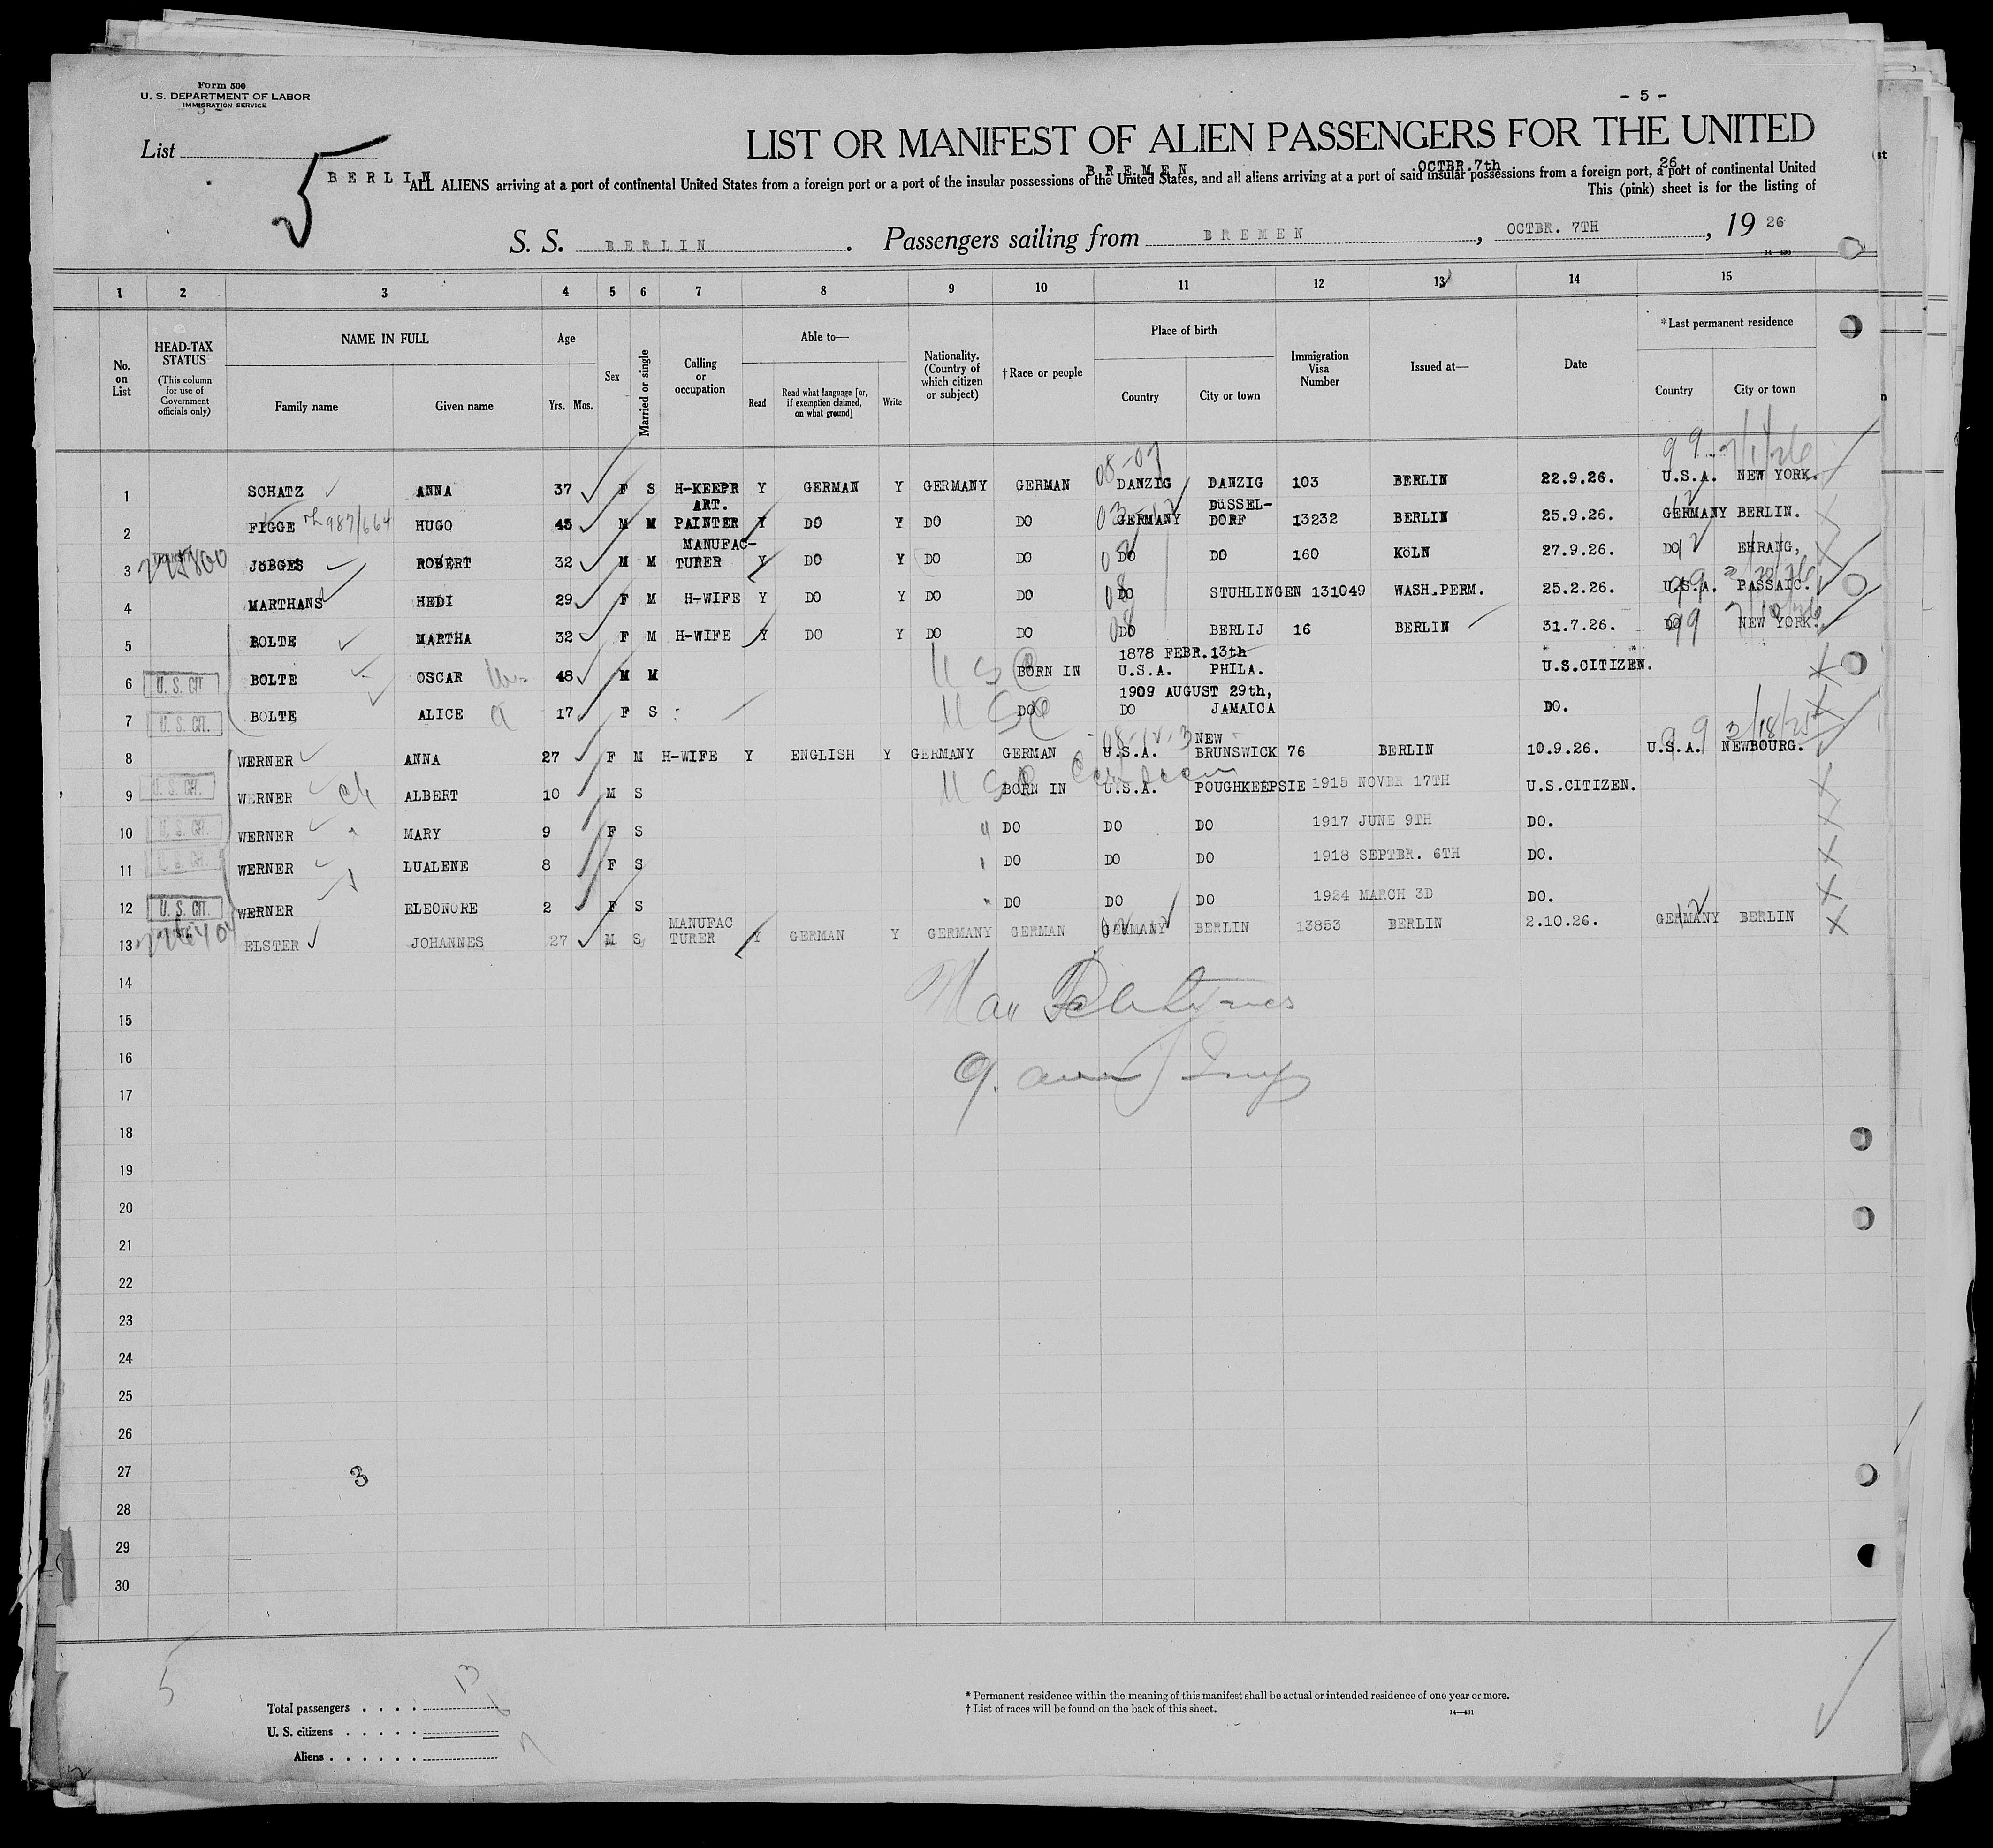 Form 500
U. S. DEPARTMENT OF LABOR
IMMIGRATION SERVICE
- 5 -
List 5
LIST OR MANIFEST OF ALIEN PASSENGERS FOR THE UNITED
BERLIN BREMEN OCTBR.7th 26
ALL ALIENS arriving at a port of continental United States from a foreign port or a port of the insular possessions of the United States, and all aliens arriving at a port of said insular possessions from a foreign port, a port of continental United
This (pink) sheet is for the listing of
S. S. BERLIN. Passengers sailing from BREMEN, OCTBR. 7TH, 19 26
14-430
1 2 3 4 5 6 7 8 9 10 11 12 13 14 15
No. on List
HEAD-TAX STATUS (This column for use of Government officials only)
NAME IN FULL
Family name Given name
Age
Yrs. Mos.
Sex
Married or single
Calling or occupation
Able to—
Read Read what language [or, if exemption claimed, on what ground] Write
Nationality. (Country of which citizen or subject)
†Race or people
Place of birth
Country City or town
Immigration Visa Number
Issued at—
Date
*Last permanent residence
Country City or town
99 7/1/26
1 SCHATZ ANNA 37 F S H-KEEPR Y GERMAN Y GERMANY GERMAN 08-07 DANZIG DANZIG 103 BERLIN 22.9.26. U.S.A. NEW YORK.
2 FIGGE 987/664 HUGO 45 M M ART. PAINTER Y DO Y DO DO GERMANY DÜSSEL-DORF 13232 BERLIN 25.9.26. GERMANY BERLIN.
3 JÖBGES ROBERT 32 M M MANUFAC-TURER Y DO Y DO DO DO DO 160 KÖLN 27.9.26. DO EHRANG,
4 MARTHANS HEDI 29 F M H-WIFE Y DO Y DO DO 08 DO STUHLINGEN 131049 WASH.PERM. 25.2.26. U.S.A. PASSAIC.
5 BOLTE MARTHA 32 F M H-WIFE Y DO Y DO DO 08 DO BERLIJ 16 BERLIN 31.7.26. DO 99 NEW YORK.
6 U. S. CIT. BOLTE OSCAR 48 M M U S C BORN IN 1878 FEBR.13th U.S.A. PHILA. U.S.CITIZEN.
7 U. S. CIT. BOLTE ALICE 17 F S U S C DO 1909 AUGUST 29th, DO JAMAICA DO.
8 WERNER ANNA 27 F M H-WIFE Y ENGLISH Y GERMANY GERMAN U.S.A. NEW BRUNSWICK 76 BERLIN 10.9.26. U.S.A. NEWBOURG.
9 U. S. CIT. WERNER ALBERT 10 M S U S C BORN IN U.S.A. POUGHKEEPSIE 1915 NOVBR 17TH U.S.CITIZEN.
10 U. S. CIT. WERNER MARY 9 F S " DO DO DO 1917 JUNE 9TH DO.
11 U. S. CIT. WERNER LUALENE 8 F S DO DO DO 1918 SEPTBR. 6TH DO.
12 U. S. CIT. WERNER ELEONORE 2 F S " DO DO DO 1924 MARCH 3D DO.
13 ELSTER JOHANNES 27 M S MANUFAC TURER Y GERMAN Y GERMANY GERMAN GERMANY BERLIN 13853 BERLIN 2.10.26. GERMANY BERLIN
14
15
16
17
18
19
20
21
22
23
24
25
26
27 3
28
29
30
5
Total passengers . . . . 13
U. S. citizens . . . . . 6
Aliens . . . . . . 7
* Permanent residence within the meaning of this manifest shall be actual or intended residence of one year or more.
† List of races will be found on the back of this sheet.
14—431